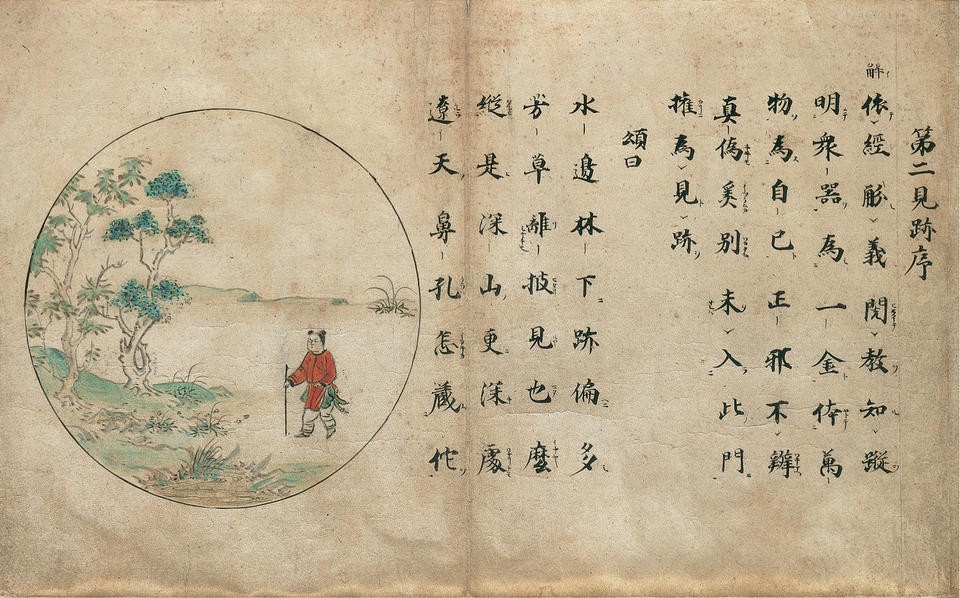 第二見跡序
解
依經解義閱教知蹤
明衆器為一金体萬
物為自己正邪不辨
真偽奚別未入此門
權為見跡
頌曰
水邊林下跡偏多
芳草離披見也麼
縱是深山更深處
遼天鼻孔怎藏佗